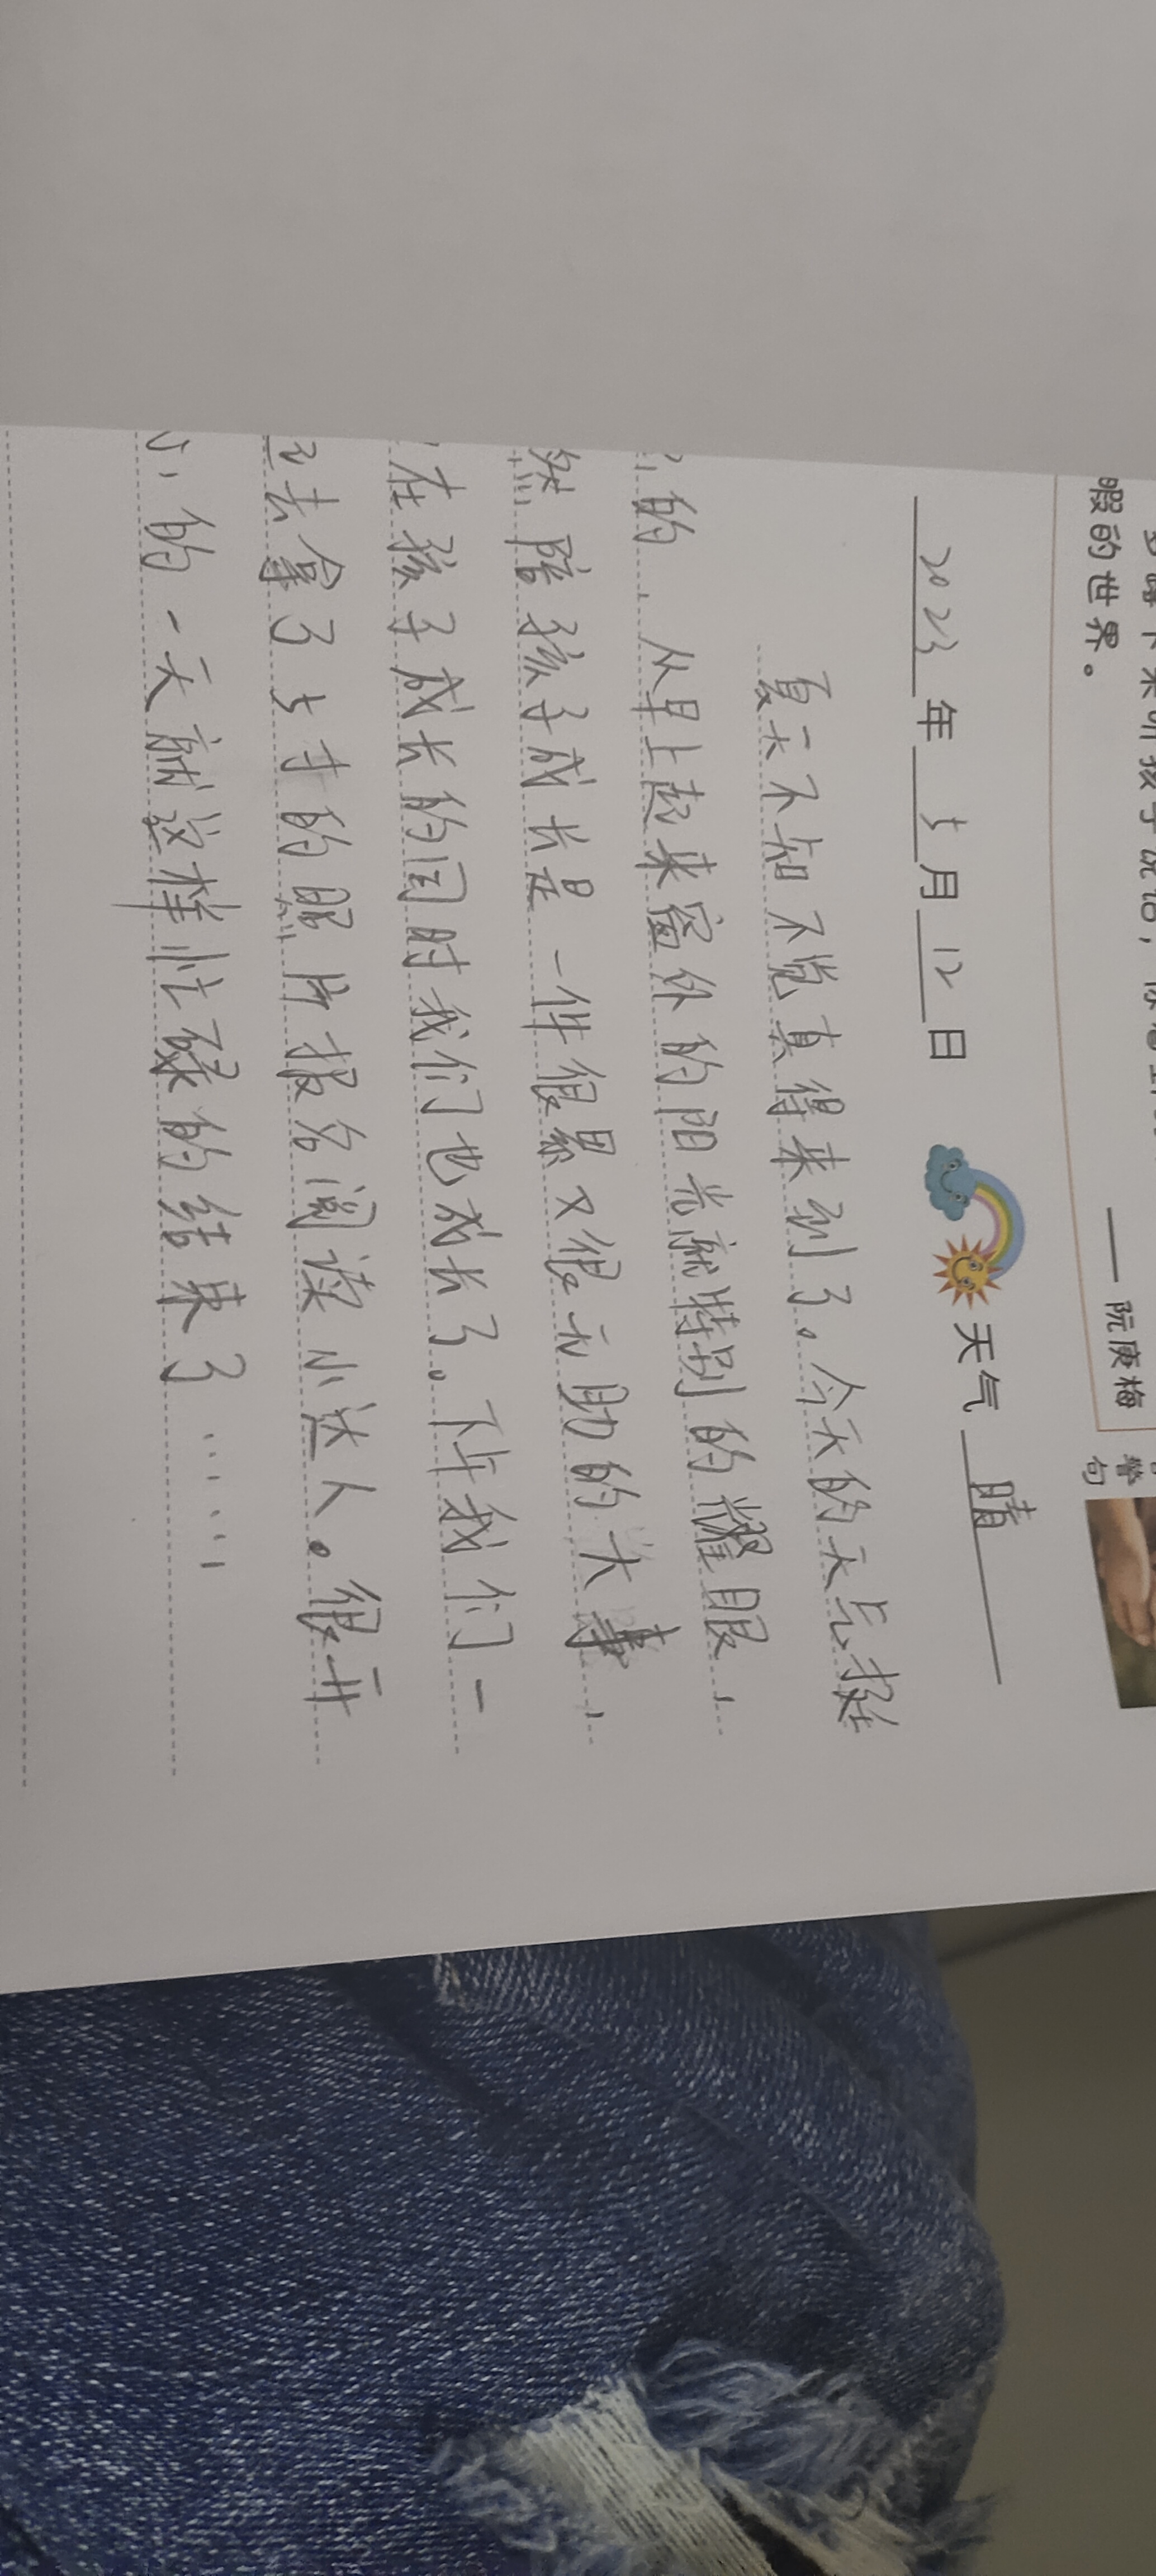 来听孩子说话，
暇的世界。
—— 阮庚梅
警
句
2023 年 5 月 12 日 天气 晴
夏天不知不觉真得来到了。今天的天气挺
的，从早上起来窗外的阳光就特别的耀眼，
然陪孩子成长是一件很累又很无助的大事，
在孩子成长的同时我们也成长了。下午我们一
去拿了5寸的照片报名阅读小达人。很开
心的一天就这样忙碌的结束了……